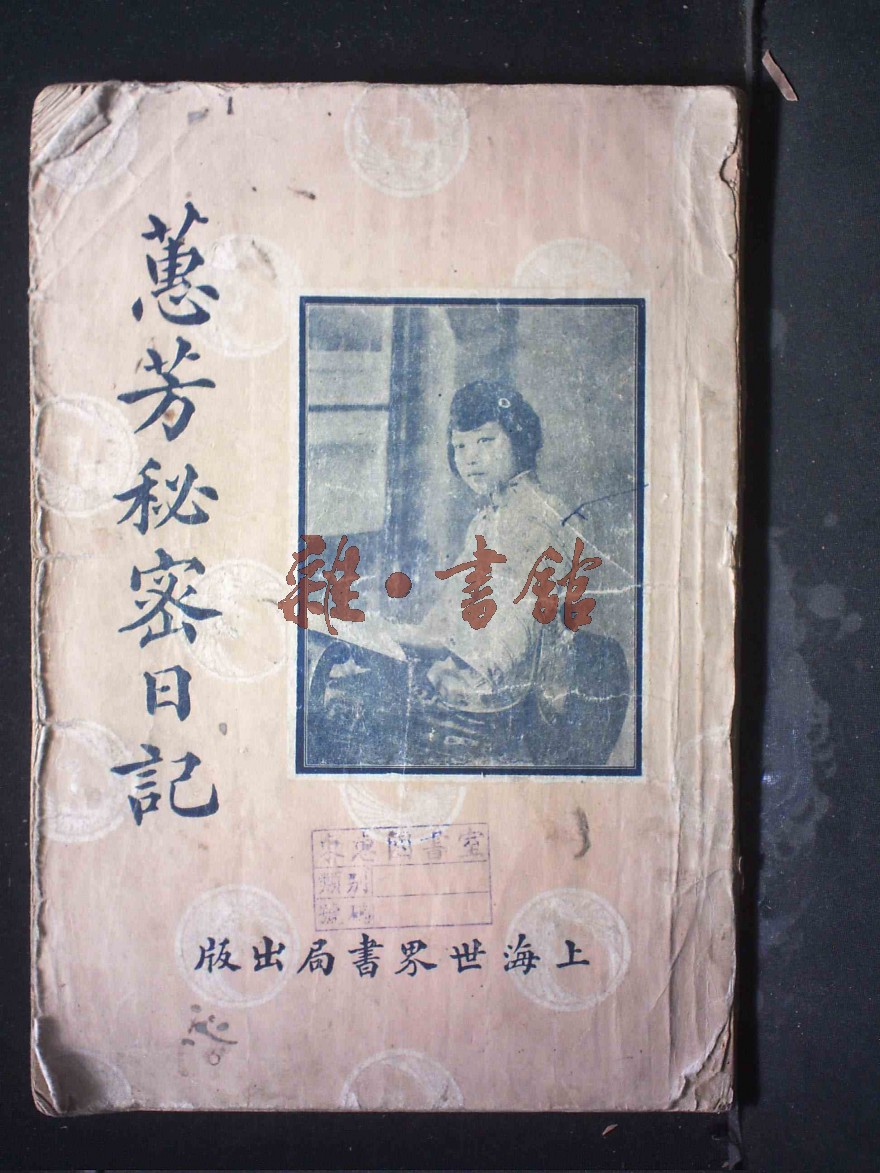 蕙芳秘密日記
雜·書館
類別
號碼
上海世界書局出版